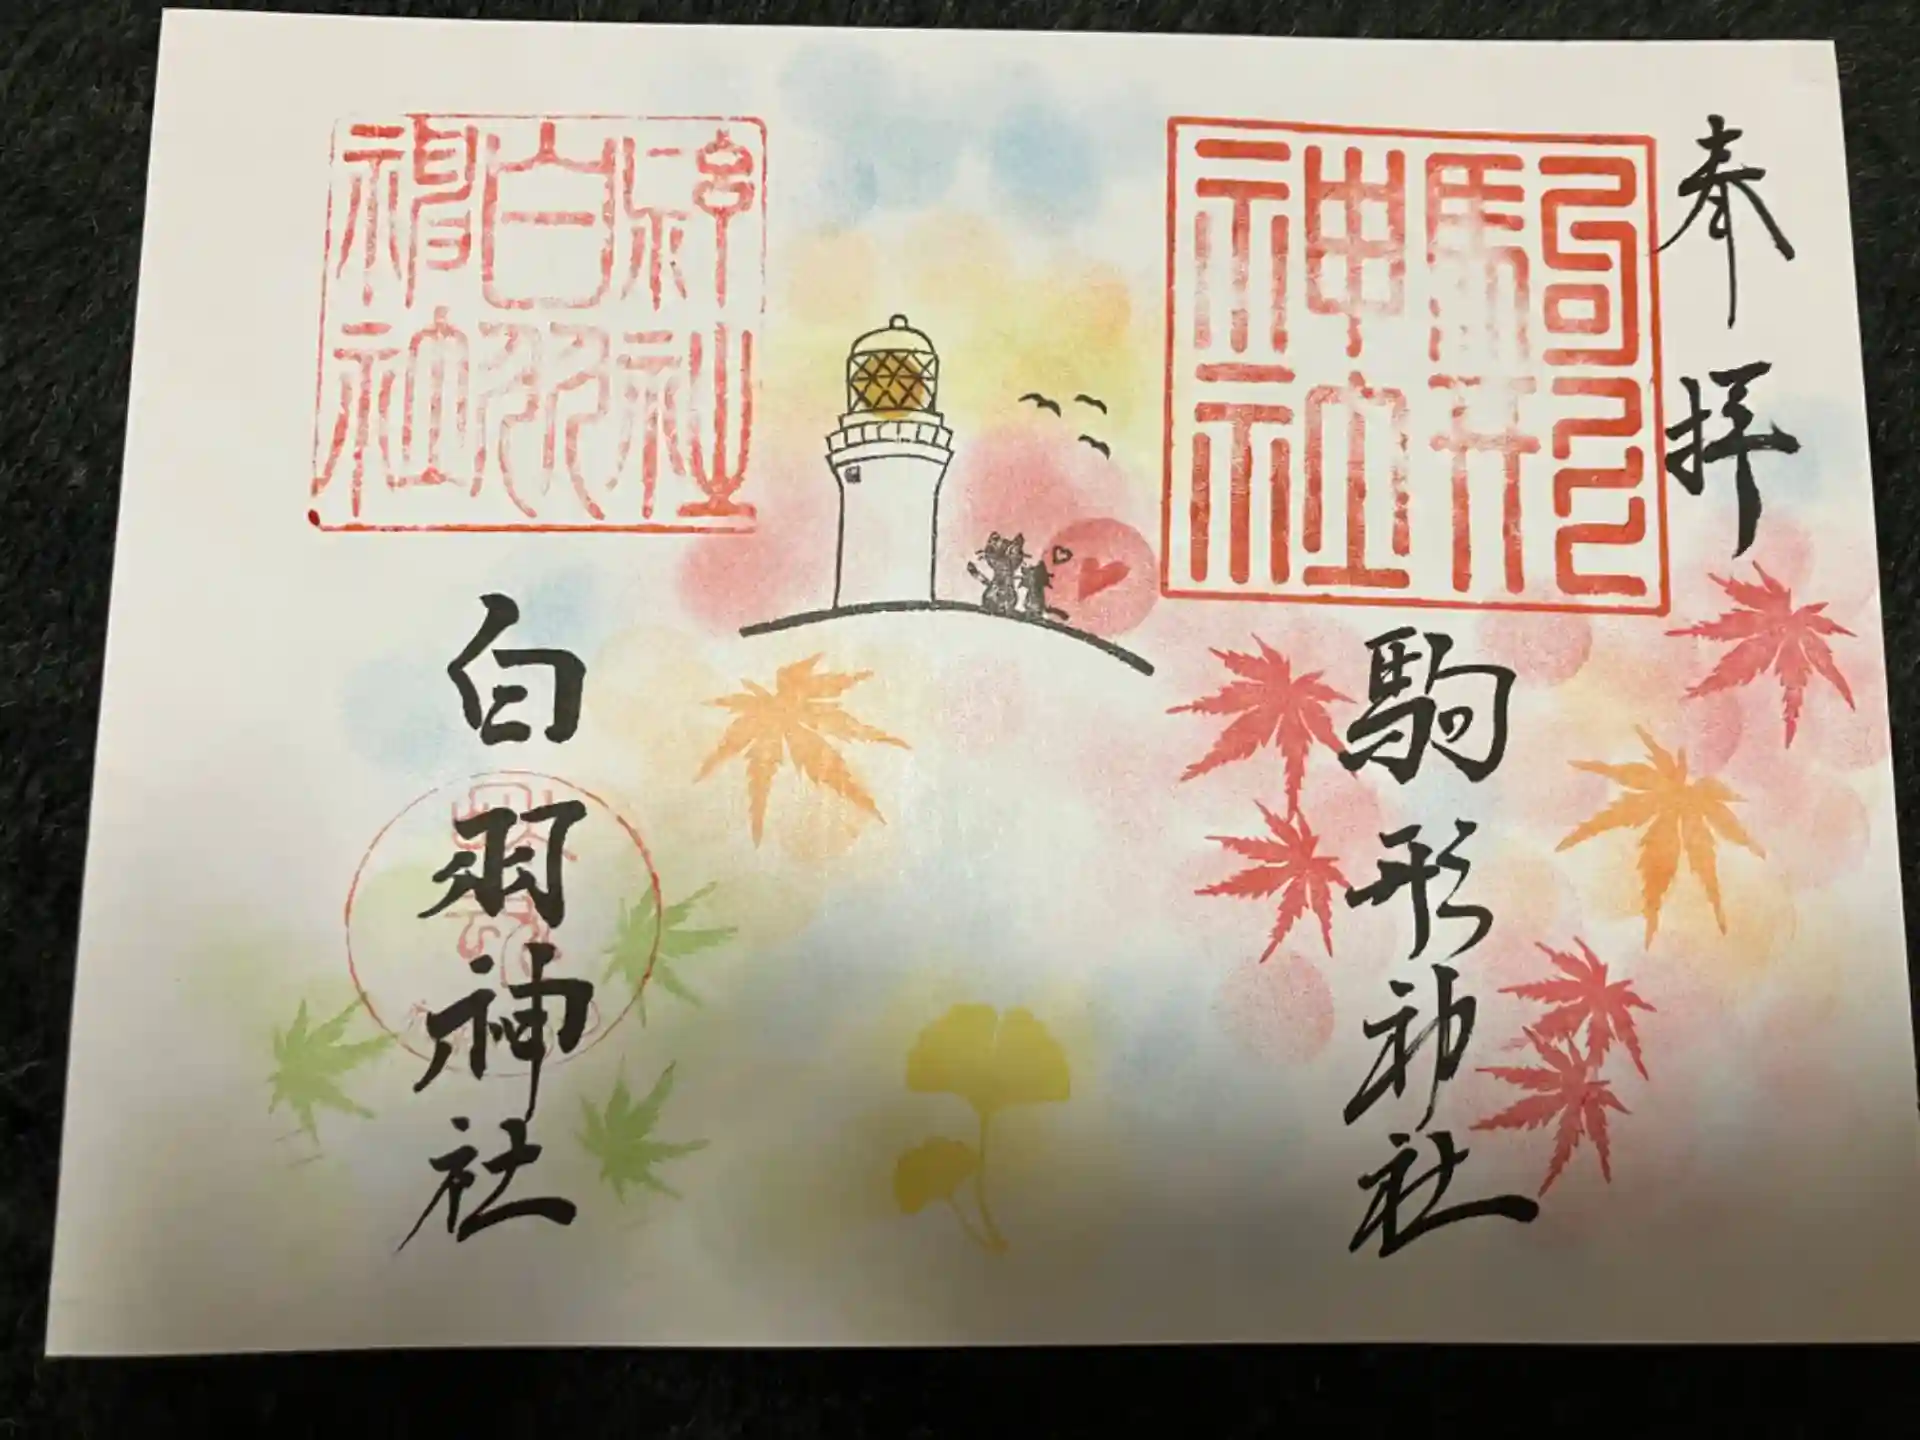 奉拝
駒形神社
駒形神社
郷社
白羽
神社
白羽神社